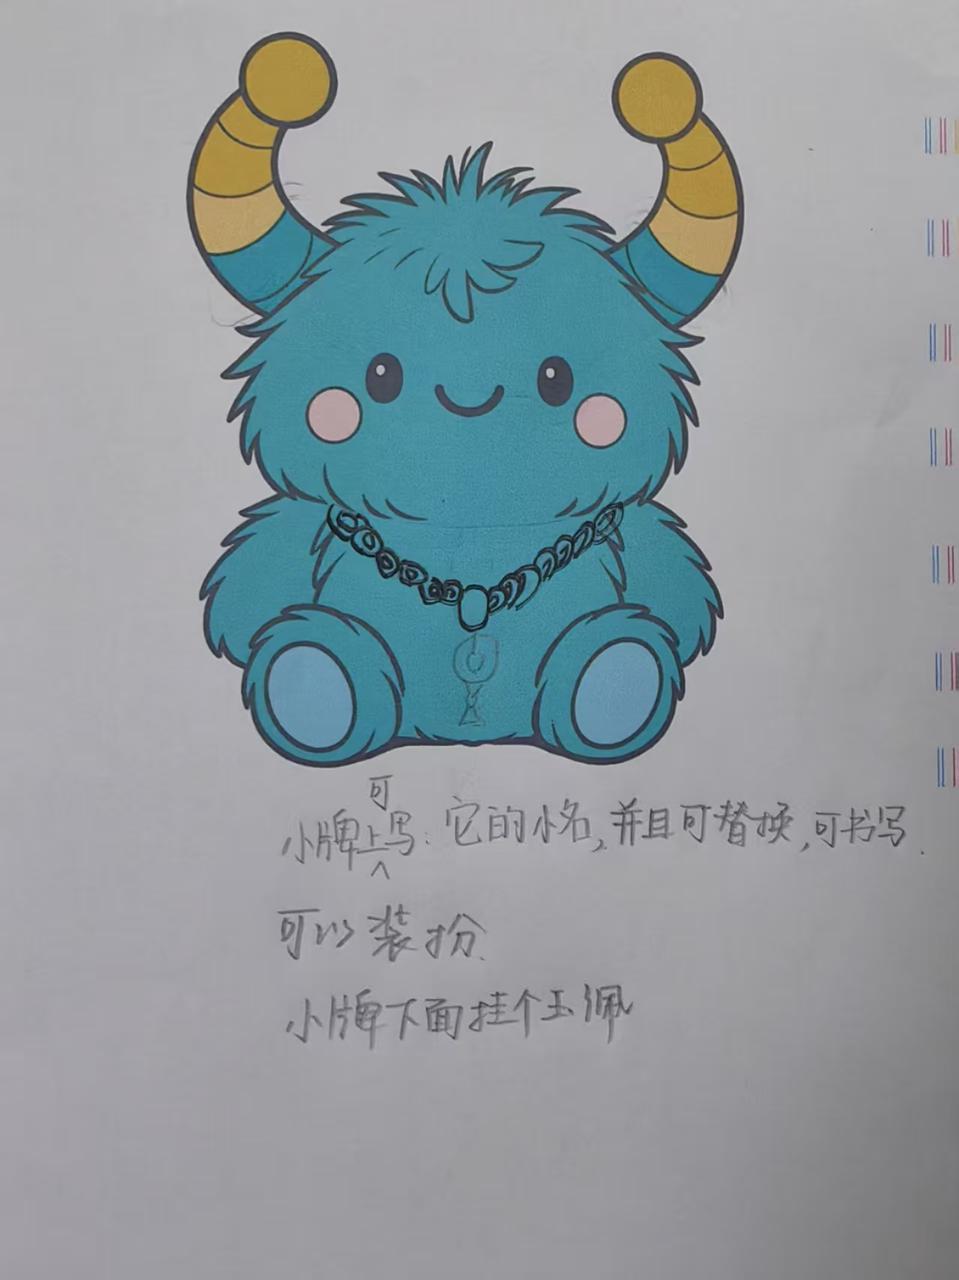 小牌上可写：它的小名，并且可替换，可书写.
可以装扮.
小牌下面挂个玉佩